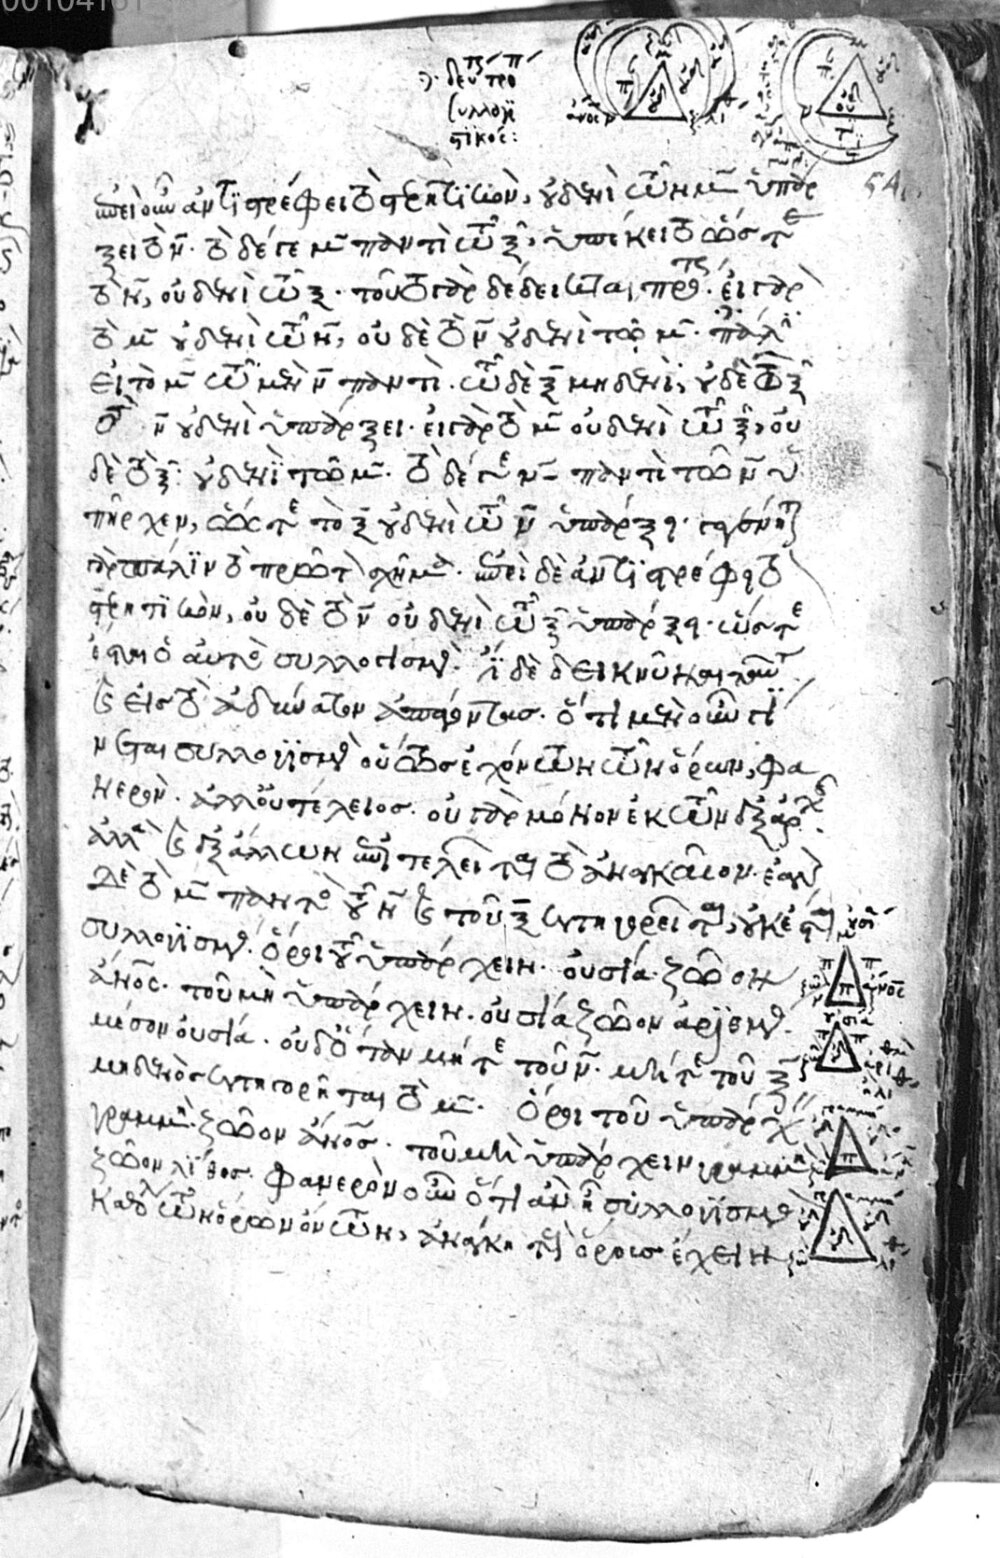 δευτερο
συλλογι
στικός:
ἐπεὶ οὖν ἀντιστρέφει τὸ στερητικὸν, οὐδενὶ τῶν μ ὑπάρ
ξει τὸ ν· τὸ δέ γε μ παντὶ τῷ ξ ὑπέκειτο ὥστε
τὸ ν, οὐδενὶ τῷ ξ· τοῦτο γὰρ δέδεικται πρότερον· εἰ γὰρ
τὸ μ οὐδενὶ τῷ ν, οὐδὲ τὸ ν οὐδενὶ τῷ μ· πάλιν
εἰ τὸ μ τῷ μὲν ν παντὶ· τῷ δὲ ξ μηδενὶ, οὐδὲ τὸ ξ
τῷ ν οὐδενὶ ὑπάρξει· εἰ γὰρ τὸ μ οὐδενὶ τῷ ξ, οὐ
δὲ τὸ ξ οὐδενὶ τῷ μ· τὸ δέ γε μ παντὶ τῷ ν ὑ
πῆρχεν, ὥστε τὸ ξ οὐδενὶ τῷ ν ὑπάρξει· γεγένηται
γὰρ πάλιν τὸ πρῶτον σχῆμα· ἐπεὶ δὲ ἀντιστρέφει τὸ
στερητικὸν, οὐδὲ τὸ ν οὐδενὶ τῷ ξ ὑπάρξει· ὥστε
ἔσται ὁ αὐτὸς συλλογισμός· ἔστι δὲ δεικνύναι ταῦτα
καὶ εἰς τὸ ἀδύνατον ἀπάγοντας· ὅτι μὲν οὖν γί
νεται συλλογισμὸς οὕτως ἐχόντων τῶν ὅρων, φα
νερόν· ἀλλ' οὐ τέλειος· οὐ γὰρ μόνον ἐκ τῶν ἐξ ἀρχῆς·
ἀλλὰ καὶ ἐξ ἄλλων ἐπιτελεῖται τὸ ἀναγκαῖον· ἐὰν
δὲ τὸ μ παντὸς τοῦ ν καὶ τοῦ ξ κατηγορεῖται, οὐκ ἔσται
συλλογισμός· ὅροι τοῦ ὑπάρχειν· οὐσία· ζῶον
ἄνος· τοῦ μὴ ὑπάρχειν· οὐσία ζῶον ἀριθμός·
μέσον οὐσία· οὐδ' ὅταν μήτε τοῦ ν· μήτε τοῦ ξ
μηδενὸς κατηγορῆται τὸ μ· ὅροι τοῦ ὑπάρχ
γραμμὴ· ζῶον ἄνος· τοῦ μὴ ὑπάρχειν γραμμὴ
ζῶον λίθος· φανερὸν οὖν ὅτι ἂν ᾖ συλλογισμὸς
καθόλου τῶν ὅρων ὄντων, ἀνάγκη τοὺς ὅρους ἔχειν